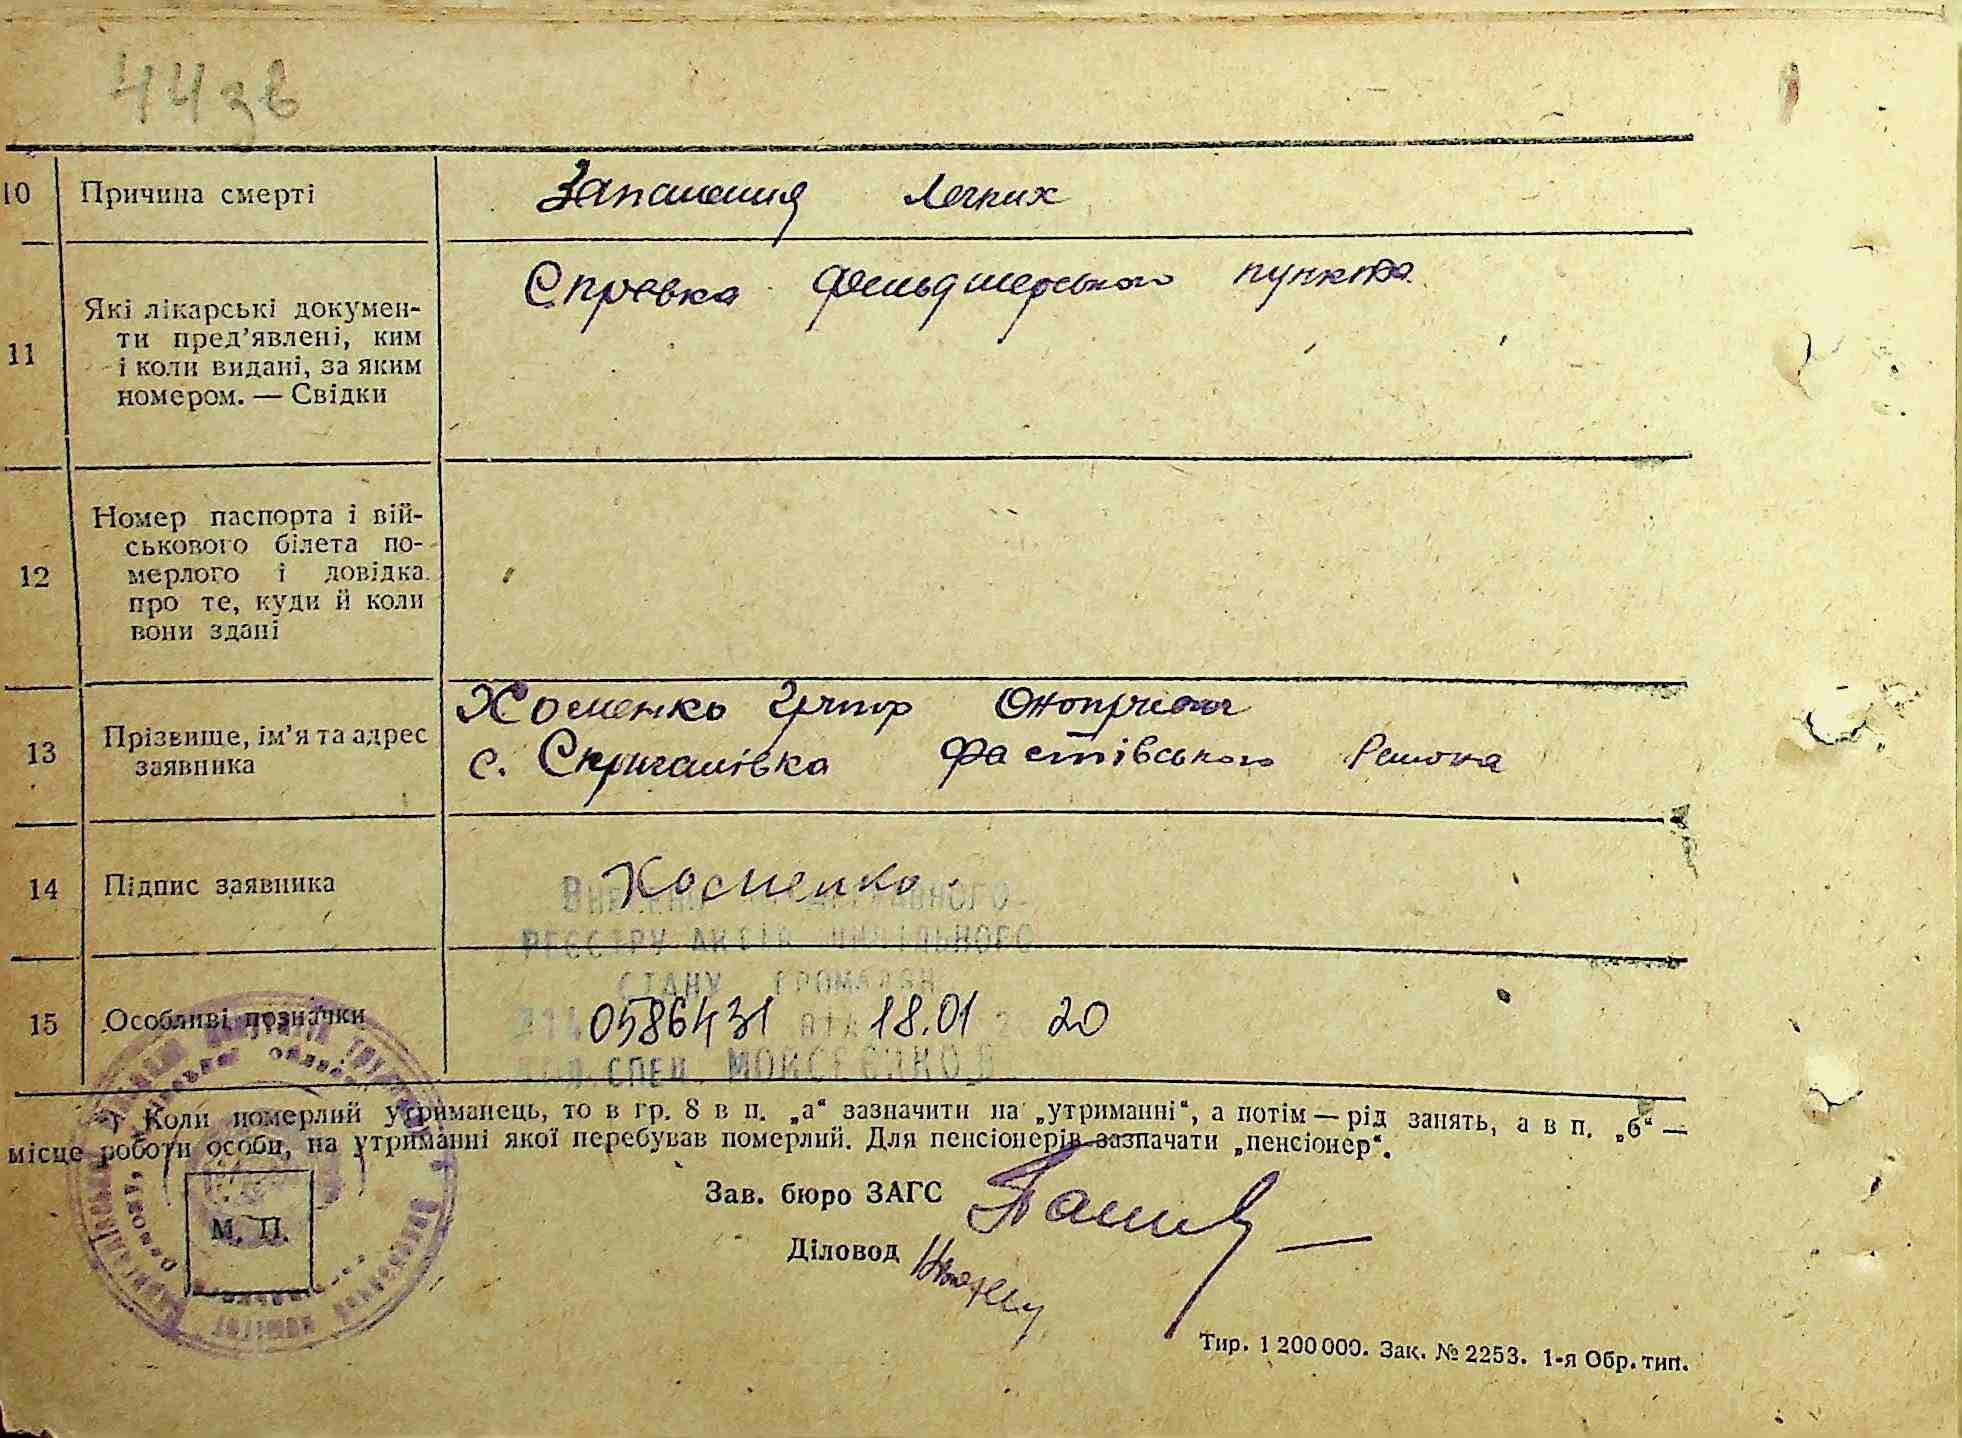 44зв
10 Причина смерті Запаления легких
11 Які лікарські докумен-
ти пред'явлені, ким
і коли видані, за яким
номером. — Свідки
Справка фельдшерського пункта
12 Номер паспорта і вій-
ськового білета по-
мерлого і довідка
про те, куди й коли
вони здані
13 Прізвище, ім'я та адрес
заявника
Хоменко Оноприєвич
с. Скригалівка Фастівського Района
14 Підпис заявника Хоменко
Внесено до державного
реєстру актів цивільного
стану громадян
0586431 від 18.01 20
спец. Моисеєнко
15 Особливі позначки
*) Коли померлий утриманець, то в гр. 8 в п. „а“ зазначити на „утриманні“, а потім — рід занять, а в п. „б“ —
місце роботи особи, на утриманні якої перебував померлий. Для пенсіонерів зазначати „пенсіонер“.
М. П.
Зав. бюро ЗАГС
Діловод
Тир. 1 200 000. Зак. № 2253. 1-я Обр. тип.